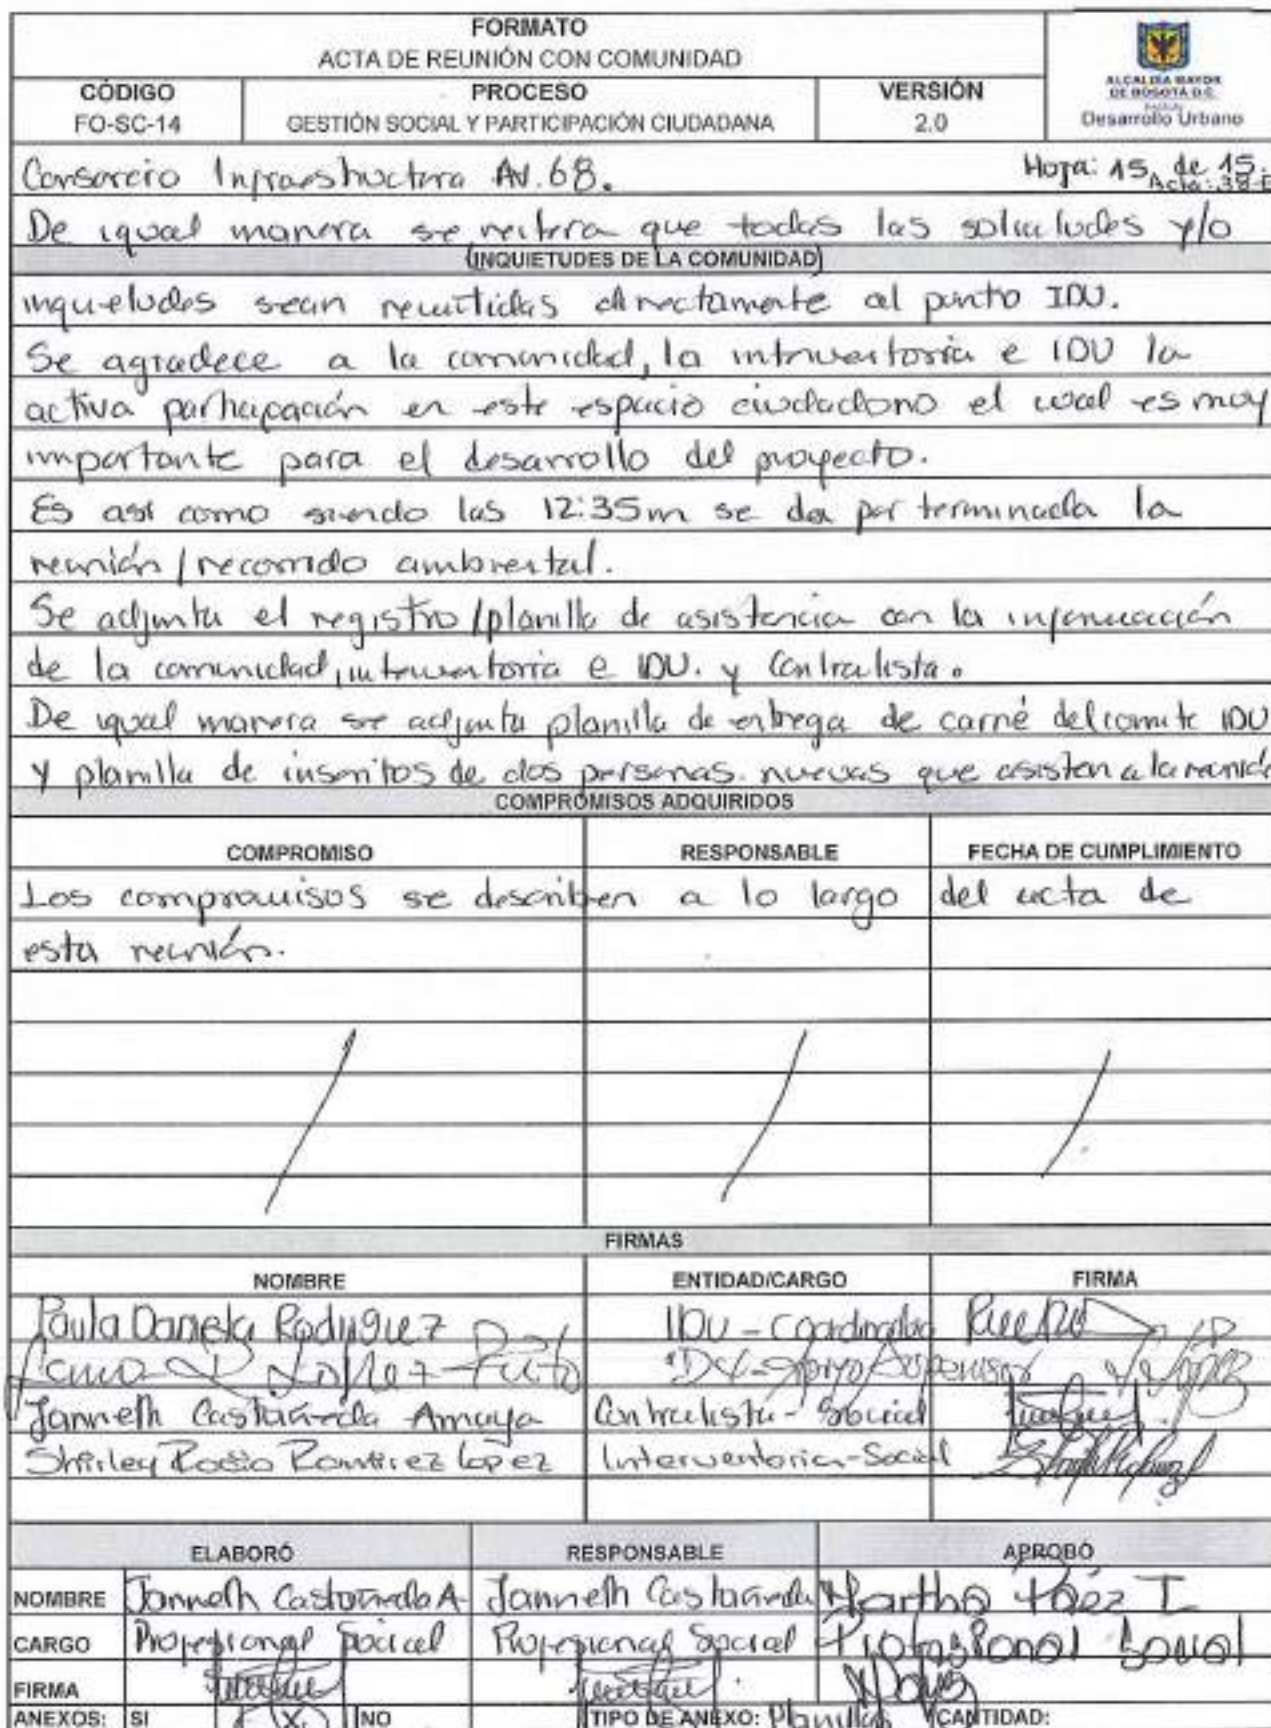 FORMATO
ACTA DE REUNIÓN CON COMUNIDAD
CÓDIGO PROCESO VERSIÓN
FO-SC-14 GESTIÓN SOCIAL Y PARTICIPACIÓN CIUDADANA 2.0
ALCALDIA MAYOR
DE BOGOTÁ D.C.
Desarrollo Urbano
Consorcio Infraestructura AV. 68. Hoja: 15 de 15.
Acta: 38-
De igual manera se reitera que todas las solicitudes y/o
(INQUIETUDES DE LA COMUNIDAD)
inquietudes sean remitidas directamente al punto IDU.
Se agradece a la comunidad, la interventoria e IDU la
activa participación en este espacio ciudadano el cual es muy
importante para el desarrollo del proyecto.
Es asi como siendo las 12:35m se da por terminada la
reunión / recorrido ambiental.
Se adjunta el registro / planilla de asistencia con la información
de la comunidad, interventoria e IDU. y Contratista.
De igual manera se adjunta planilla de entrega de carné del comite IDU
y planilla de inscritos de dos personas nuevas que asisten a la reunión
COMPROMISOS ADQUIRIDOS
COMPROMISO RESPONSABLE FECHA DE CUMPLIMIENTO
Los compromisos se describen a lo largo del acta de
esta reunión.
FIRMAS
NOMBRE ENTIDAD/CARGO FIRMA
Paula Daniela Rodriguez IDU - Coordinador
López IDU - Apoyo Supervisor
Janneth Castañeda Amaya Contratista - Social
Shirley Rocio Ramirez López Interventoria - Social
ELABORÓ RESPONSABLE APROBÓ
NOMBRE Janneth Castañeda A Janneth Castañeda Martha Páez T
CARGO Profesional Social Profesional Social Profesional Social
FIRMA
ANEXOS: SI X NO TIPO DE ANEXO: Planillas CANTIDAD: